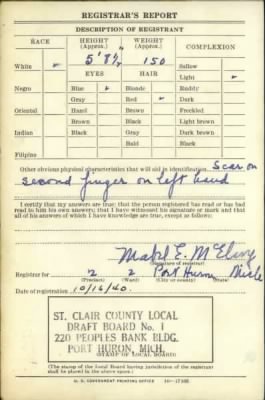 REGISTRAR'S REPORT
DESCRIPTION OF REGISTRANT
RACE HEIGHT (Approx.) WEIGHT (Approx.) COMPLEXION
White ✓ 5' 8½" 150 Sallow
EYES HAIR Light ✓
Negro Blue ✓ Blonde Ruddy
Gray Red ✓ Dark
Oriental Hazel Brown Freckled
Brown Black Light brown
Indian Black Gray Dark brown
Bald Black
Filipino
Other obvious physical characteristics that will aid in identification Scar on
second finger on left hand
I certify that my answers are true; that the person registered has read or has had
read to him his own answers; that I have witnessed his signature or mark and that
all of his answers of which I have knowledge are true, except as follows:
Mabel E. McElroy
(Signature of registrar)
Registrar for 2 2 Port Huron Mich
(Precinct) (Ward) (City or county) (State)
Date of registration 10/16/40
ST. CLAIR COUNTY LOCAL
DRAFT BOARD No. 1
220 PEOPLES BANK BLDG.
PORT HURON, MICH.
(STAMP OF LOCAL BOARD)
(The stamp of the Local Board having jurisdiction of the registrant
shall be placed in the above space.)
U. S. GOVERNMENT PRINTING OFFICE